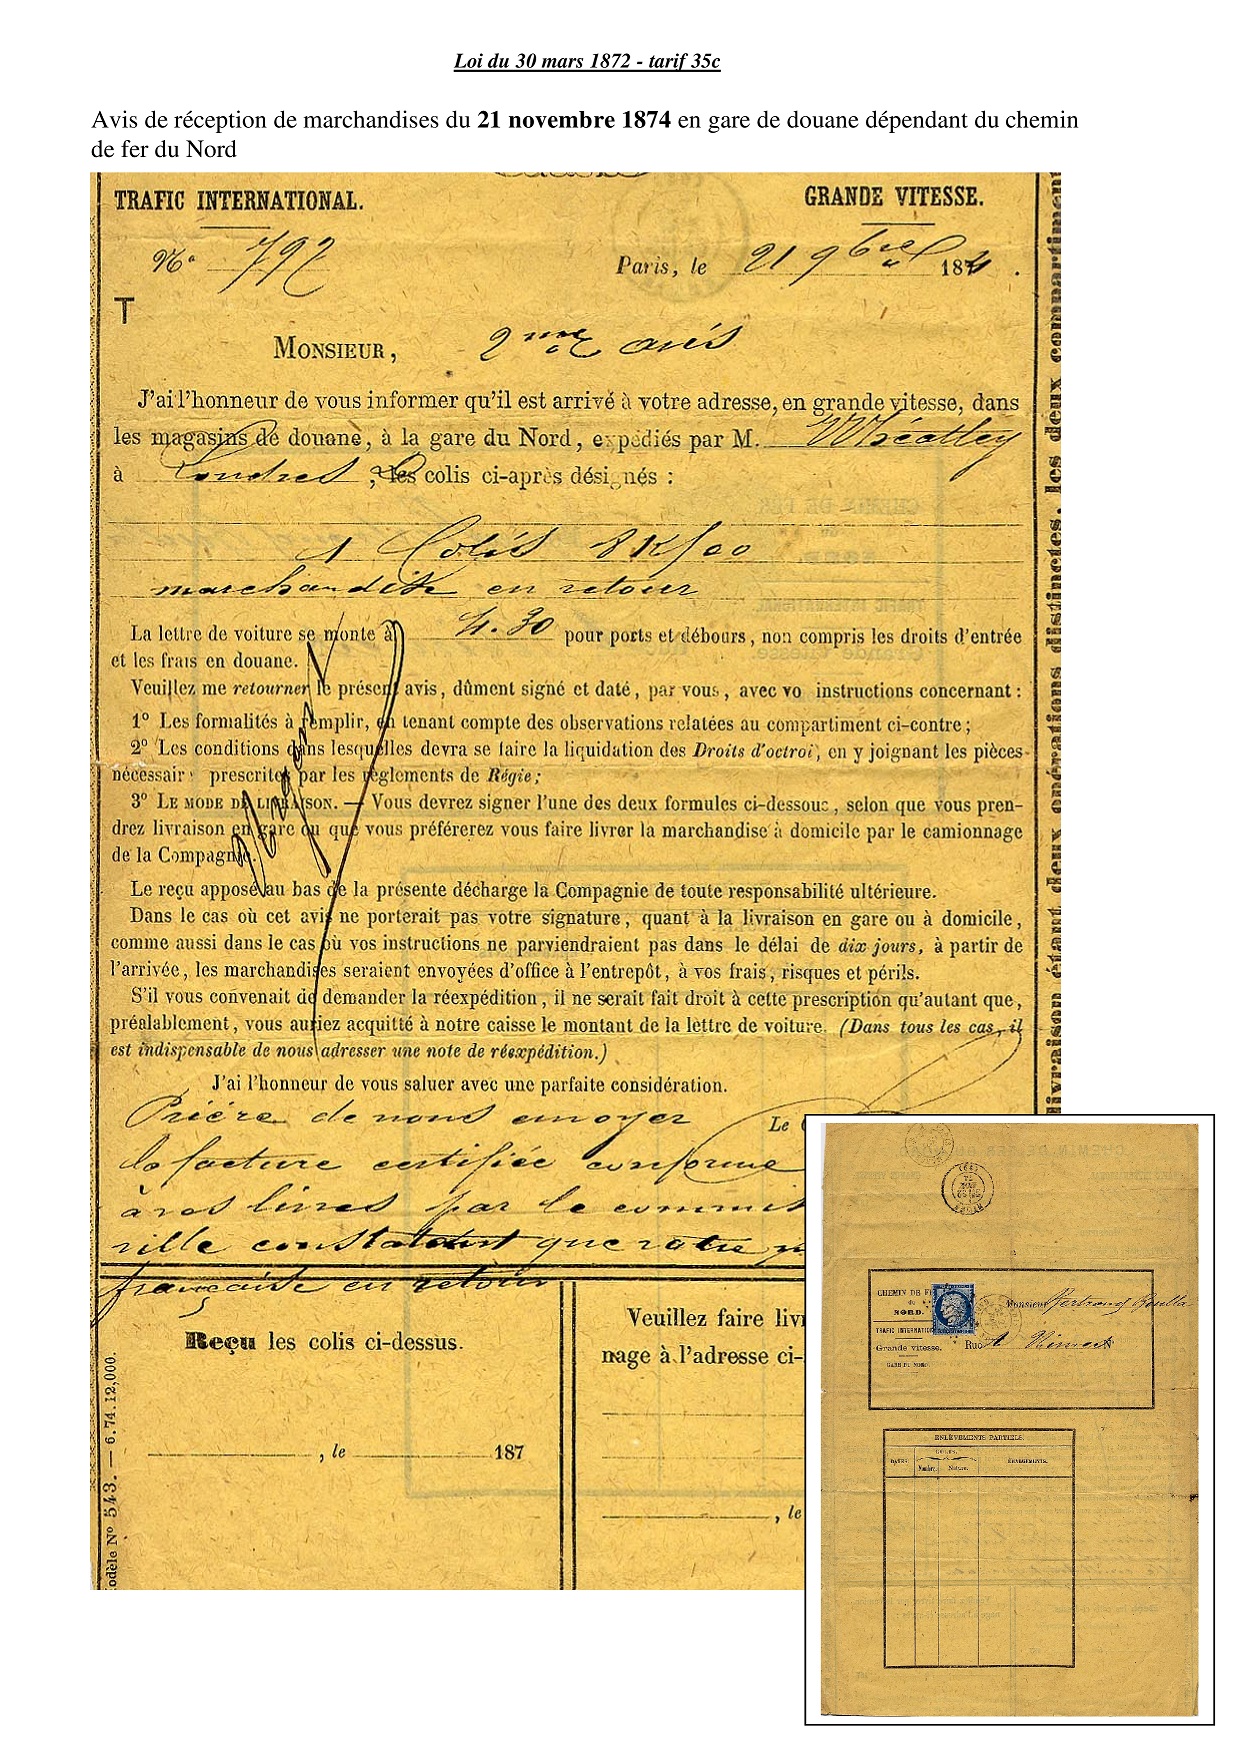 Loi du 30 mars 1872 - tarif 35c
Avis de réception de marchandises du 21 novembre 1874 en gare de douane dépendant du chemin
de fer du Nord
TRAFIC INTERNATIONAL.
GRANDE VITESSE.
N° 792
Paris, le 21 9bre 1874.
T
MONSIEUR, 2me avis
J'ai l'honneur de vous informer qu'il est arrivé à votre adresse, en grande vitesse, dans
les magasins de douane, à la gare du Nord, expédiés par M. Wheatley
à Londres, les colis ci-après désignés :
1 Colis 8K500
marchandise en retour
La lettre de voiture se monte à 4.30 pour ports et débours, non compris les droits d'entrée
et les frais en douane.
Veuillez me retourner le présent avis, dûment signé et daté, par vous, avec vo instructions concernant :
1° Les formalités à remplir, en tenant compte des observations relatées au compartiment ci-contre ;
2° Les conditions dans lesquelles devra se faire la liquidation des Droits d'octroi, en y joignant les pièces
nécessair prescrites par les règlements de Régie ;
3° LE MODE DE LIVRAISON. — Vous devrez signer l'une des deux formules ci-dessous, selon que vous pren-
drez livraison en gare ou que vous préférerez vous faire livrer la marchandise à domicile par le camionnage
de la Compagnie.
Le reçu apposé au bas de la présente décharge la Compagnie de toute responsabilité ultérieure.
Dans le cas où cet avis ne porterait pas votre signature, quant à la livraison en gare ou à domicile,
comme aussi dans le cas où vos instructions ne parviendraient pas dans le délai de dix jours, à partir de
l'arrivée, les marchandises seraient envoyées d'office à l'entrepôt, à vos frais, risques et périls.
S'il vous convenait de demander la réexpédition, il ne serait fait droit à cette prescription qu'autant que,
préalablement, vous auriez acquitté à notre caisse le montant de la lettre de voiture. (Dans tous les cas, il
est indispensable de nous adresser une note de réexpédition.)
J'ai l'honneur de vous saluer avec une parfaite considération.
Prière de nous envoyer
Le
la facture certifiée conforme
à vos livres par le commis
ville constatant que votre
française en retour
Reçu les colis ci-dessus.
Veuillez faire livr
nage à l'adresse ci-
, le 187
, le
odèle N° 543. — 6.74.12,000.
livraison étant deux opérations distinctes, les deux compartiment
CHEMIN DE F
du
NORD.
TRAFIC INTERNATION
Grande vitesse.
GARE DU NORD.
Monsieur Bertrand
Rue
ENLÈVEMENTS PARTIELS.
DATES
COLIS.
Nombre.
Nature.
ÉMARGEMENTS.